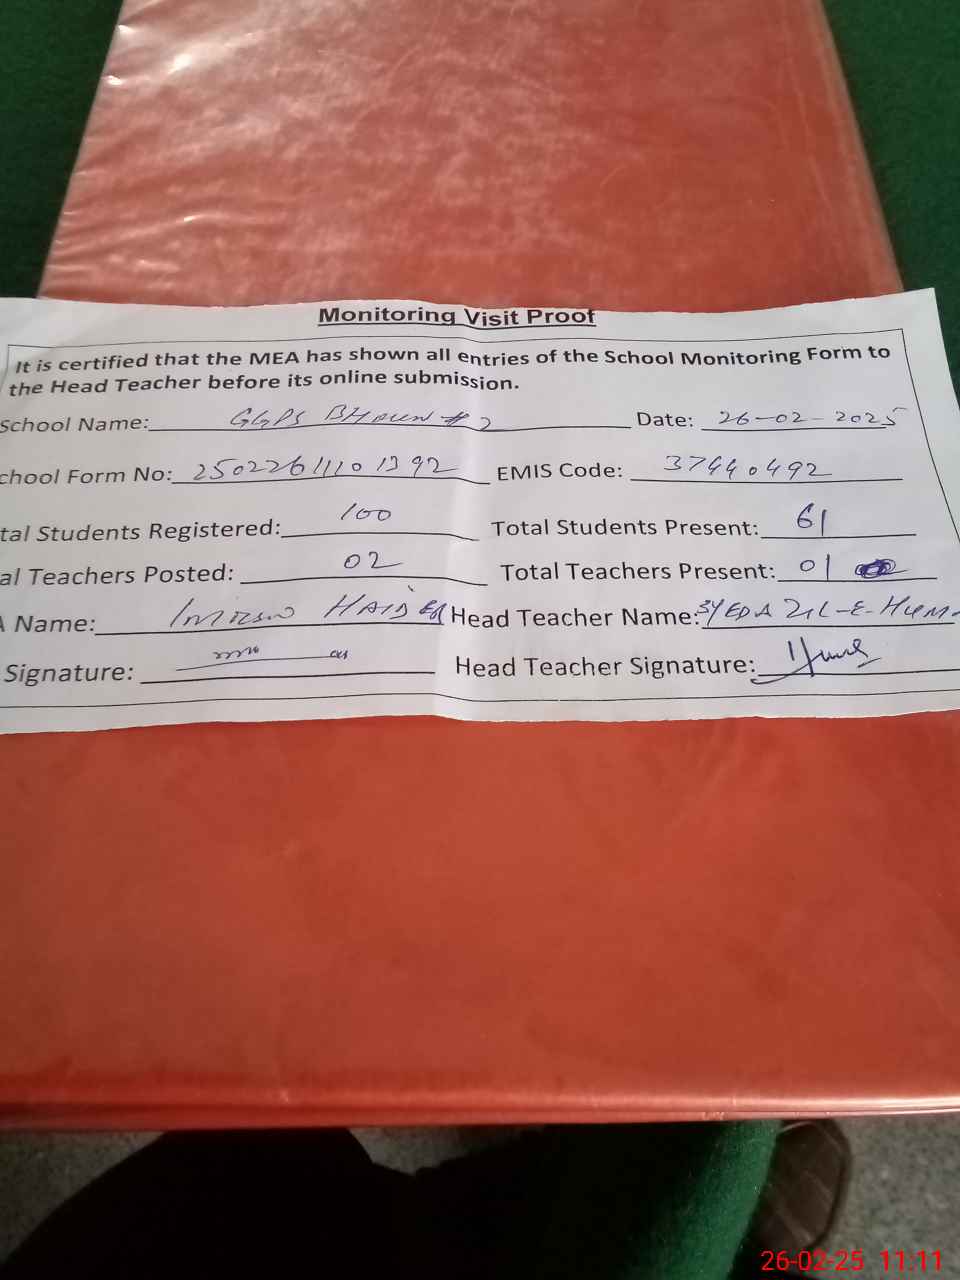 Monitoring Visit Proof
It is certified that the MEA has shown all entries of the School Monitoring Form to
the Head Teacher before its online submission.
School Name: GGPS BHOUN # 2 Date: 26-02-2025
chool Form No: EMIS Code: 37440492
tal Students Registered: 100 Total Students Present: 61
al Teachers Posted: 02 Total Teachers Present: 01
A Name: IMRAN HAIDER Head Teacher Name: SYEDA ZIL-E-HUM
Signature: Head Teacher Signature:
26-02-25 11:11